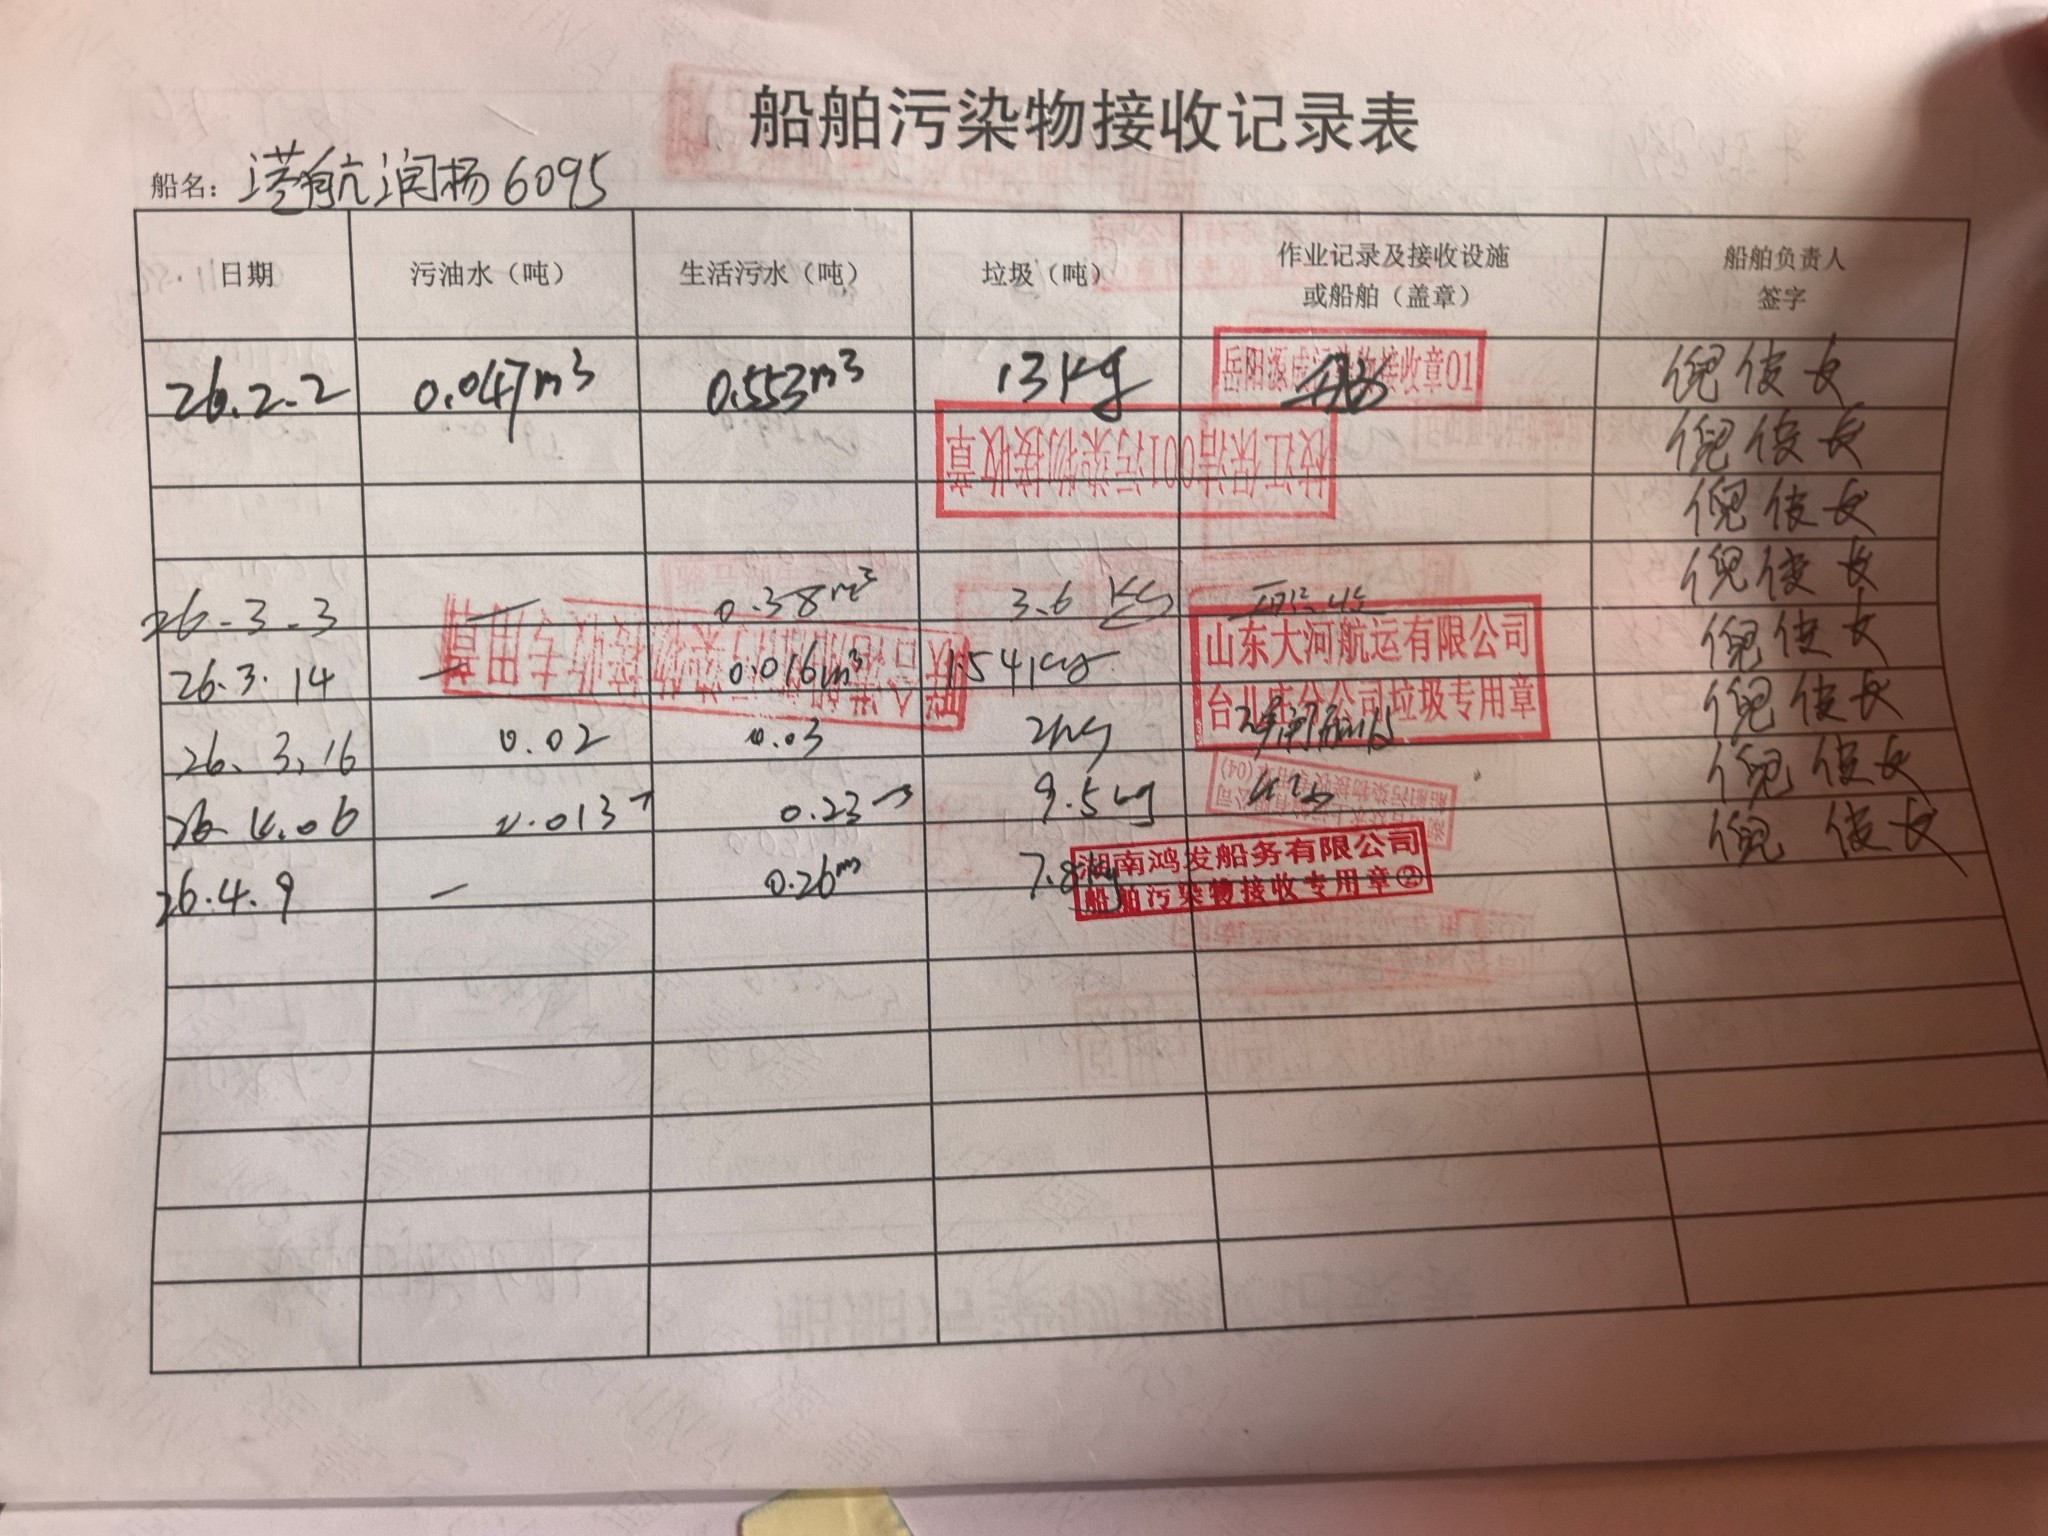 船舶污染物接收记录表
船名：港航润杨6095
日期 污油水（吨） 生活污水（吨） 垃圾（吨） 作业记录及接收设施或船舶（盖章） 船舶负责人签字
26.2.2 0.047m³ 0.553m³ 13kg 岳阳 污染物接收章01 倪俊长
枝江保洁001污染物接收章 倪俊长
倪俊长
26.3.3 — 0.38m³ 3.6 KG 倪俊长
26.3.14 — 0.016m³ 1.541kg 山东大河航运有限公司 倪俊长
台儿庄分公司垃圾专用章
污染物接收专用章
26.3.16 0.02 0.03 2kg 倪俊长
26.4.06 0.013 0.23 9.5kg 倪俊长
船舶污染物接收专用章(04)
26.4.9 — 0.26m 7.8kg 湖南鸿发船务有限公司 倪俊长
船舶污染物接收专用章②